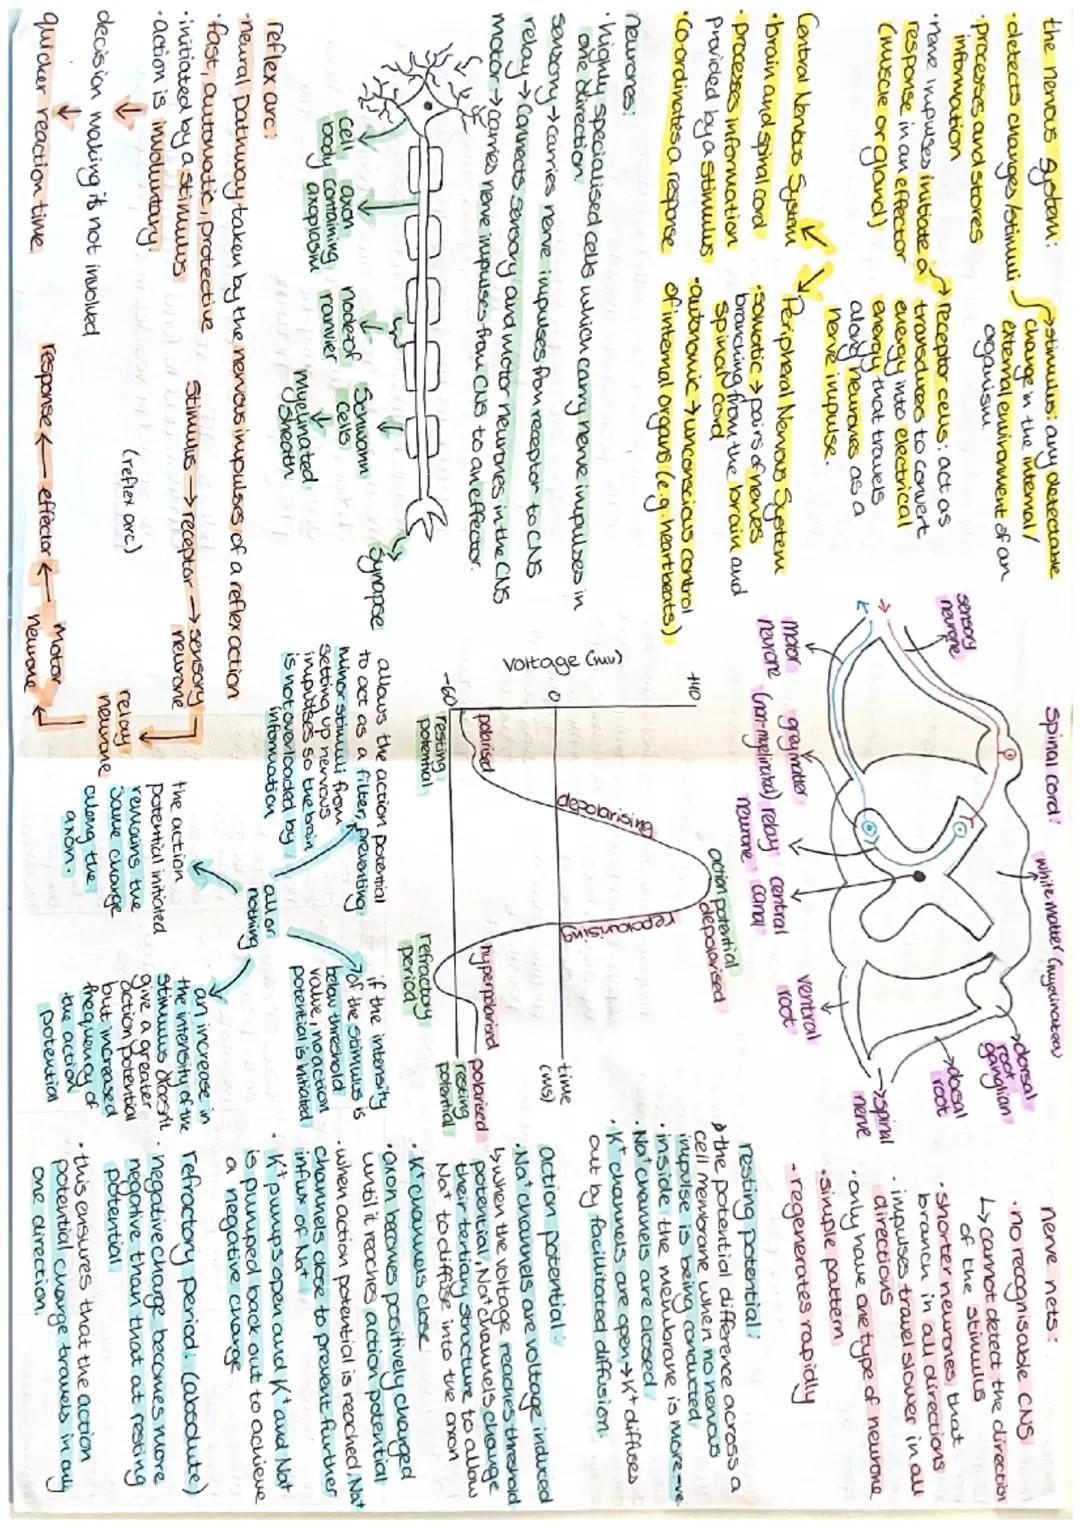 the nervous system:
·detects changes/stimuli
·processes and stores
information
·nerve impulses initiate a
response in an effector
(muscle or gland)
→stimulus: any detectable
change in the internal/
external environment of an
organism
→receptor cells: act as
transducers to convert
energy into electrical
energy that travels
along neurones as a
nerve impulse.
Central Nervous System
·brain and spinal cord
·processes information
provided by a stimulus
·Co-ordinates a response
Peripheral Nervous System
·somatic → pairs of nerves
branching from the brain and
spinal cord
·autonomic → unconscious control
of internal organs (e.g. heartbeats)
neurones:
·highly specialised cells which carry nerve impulses in
one direction
sensory → carries nerve impulses from receptor to CNS
relay → connects sensory and motor neurones in the CNS
motor → carries nerve impulses from CNS to an effector.
cell
body
axon
containing
axoplasm
node of
ranvier
Schwann
cells
myelinated
sheath
synapse
reflex arc:
·neural pathway taken by the nervous impulses of a reflex action
·fast, automatic, protective
·initiated by a stimulus
·action is involuntary.
↓
decision making is not involved
↓
quicker reaction time
Stimulus → receptor → sensory
neurone
relay
neurone
(reflex arc)
response ← effector ← motor
neurone
spinal cord:
white matter (myelinated)
sensory
neurone
dorsal
root
ganglion
dorsal
root
spinal
nerve
motor
neurone
grey matter
(non-myelinated)
relay
neurone
central
canal
ventral
root
+40
0
-60
voltage (mv)
time
(ms)
action potential
depolarised
depolarising
repolarising
polarised
resting
potential
hyperpolarised
refractory
period
polarised
resting
potential
allows the action potential
to act as a filter, preventing
minor stimuli from
setting up nervous
impulses so the brain
is not overloaded by
information
if the intensity
of the stimulus is
below threshold
value, no action
potential is initiated
all or
nothing
the action
potential initiated
remains the
same charge
along the
axon.
an increase in
the intensity of the
stimulus doesn't
give a greater
action potential
but increased
frequency of
the action
potential
nerve nets:
·no recognisable CNS
↳ cannot detect the direction
of the stimulus
·shorter neurones that
branch in all directions
·impulses travel slower in all
directions
·only have one type of neurone
·simple pattern
-regenerates rapidly
resting potential:
↳ the potential difference across a
cell membrane when no nervous
impulse is being conducted
·inside the membrane is more -ve
·Na⁺ channels are closed
·K⁺ channels are open, → K⁺ diffuses
out by facilitated diffusion
action potential:
·Na⁺ channels are voltage induced
↳ when the voltage reaches threshold
potential, Na⁺ channels change
their tertiary structure to allow
Na⁺ to diffuse into the axon
·K⁺ channels close
·axon becomes positively charged
until it reaches action potential
·when action potential is reached, Na⁺
channels close to prevent further
influx of Na⁺
·K⁺ pumps open and K⁺ and Na⁺
is pumped back out to achieve
a negative charge
refractory period: (absolute)
·negative charge becomes more
negative than that at resting
potential
·this ensures that the action
potential charge travels in only
one direction.